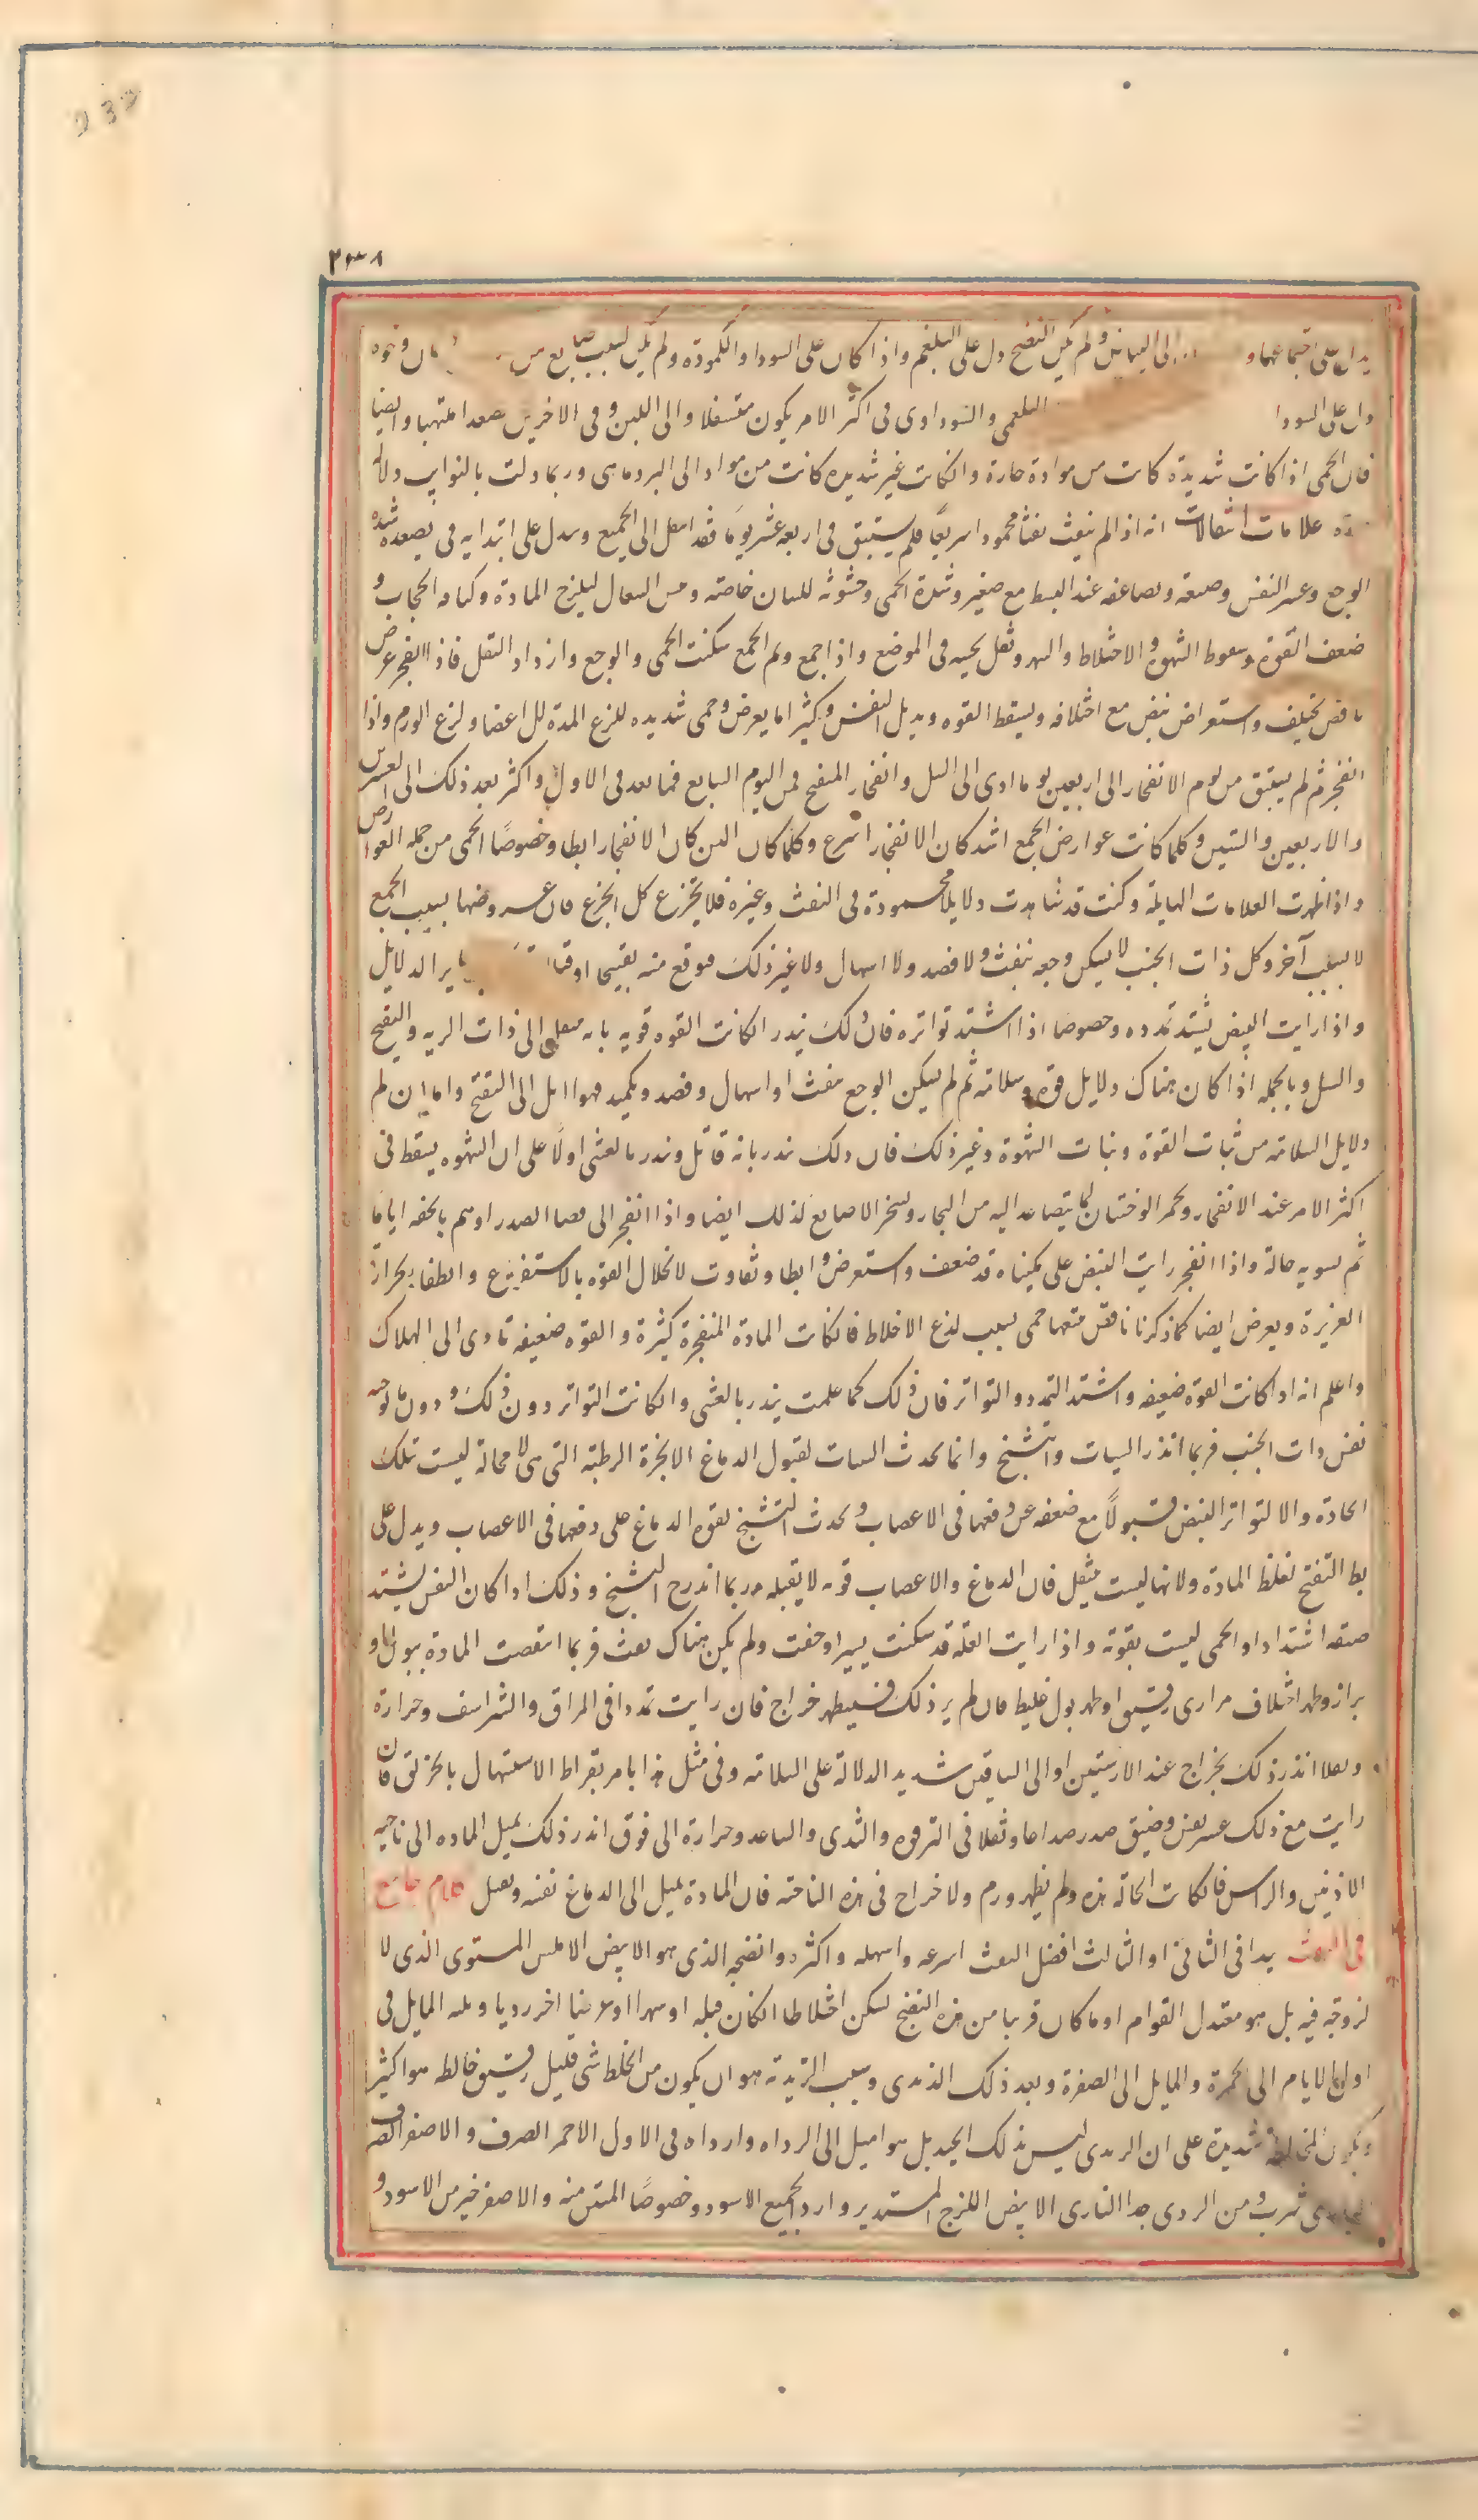 ٢٣٨
يدل على اجتماعهما و الى البياض ولم يكن النضج دل على البلغم واذا كان على السودا والكمودة ولم يكن لسبب صابغ من ونحوه
دل على السودا البلغمى والسوداوى فى اكثر الامر يكون متسفلا والى اللين وفى الاخرين صعدا ملتهبا وايضا
فان الحمى اذا كانت شديدة كانت من موادة حارة وانكانت غير شديده كانت من مواد الى البرد ماهى وربما دلت بالنوايب دلالة
علامات انتقالات انه اذا لم ينفث نفثا محمودا سريعا فلم يستبق فى اربعه عشر يوما فقد انتقل الى الجمع ويدل على ابتدايه فى تصعده شده
الوجع وعسر النفس وضيقه وتضاعفه عند البسط مع صغر وشدة الحمى وخشونه للسان خاصه ويبس السعال لتلزج المادة وكثافه الحجاب و
ضعف القوة وسقوط الشهوة والاختلاط والسهر وثقل يحسه فى الموضع واذا جمع وتم الجمع سكنت الحمى والوجع وازداد الثقل فاذا انفجر عرض
نافض مختلف واستعراض نبض مع اختلافه وتسقط القوه ويذبل النفس وكثيرا ما يعرض حمى شديده للذع المدة للاعضا ولذع الورم واذا
انفجر ثم لم يستبق من يوم الانفجار الى اربعين يوما ادى الى السل وانفجار المتقيح فى اليوم السابع فما بعد فى الاول واكثر بعد ذلك الى العشرين
والاربعين والستين وكلما كانت عوارض الجمع اشد كان الانفجار اسرع وكلما كان الين كان الانفجار ابطا وخصوصا الحمى من جمله العوارض
واذا ظهرت العلامات الهايلة وكنت قد شاهدت دلايل محمودة فى النفث وغيره فلا تجزع كل الجزع فان عروضها بسبب الجمع
لا بسبب آخر وكل ذات الجنب لا يسكن وجعه بنفث ولا فصد ولا اسهال ولا غير ذلك فتوقع منه تقيحا او قتلا ساير الدلايل
واذا رايت النبض يشتد تمدده وخصوصا اذا اشتد تواتره فان ذلك ينذر انكانت القوه قويه بانه ينتقل الى ذات الريه والتقيح
والسل وبالجمله اذا كان هناك دلايل قوه وسلامه ثم لم يسكن الوجع بنفث او اسهال وفصد وتكميد فهو ايل الى التقيح واما ان لم
دلايل السلامه من ثبات القوة وثبات الشهوة وغير ذلك فان ذلك ينذر بانه قاتل وينذر بالغشى اولا على ان الشهوه يسقط فى
اكثر الامر عند الانفجار وتحمر الوجنتان لما يتصاعد اليه من البخار وتسخن الاصابع لذلك ايضا واذا انفجر الى فضا الصدر اوهم بالخفه اياما
ثم يسو به حاله واذا انفجر رايت النبض على كميناه قد ضعف واستعرض وابطا وتفاوت لانحلال القوه بالاستفراغ وانطفا الحرارة
الغريزه ويعرض ايضا كما ذكرنا نافض يتبعها حمى بسبب لذع الاخلاط فانكانت المادة المنفجرة كثيرة والقوه ضعيفه تادى الى الهلاك
واعلم انه اذا كانت القوه ضعيفه واشتد التمدد والتواتر فان ذلك كما علمت ينذر بالغشى وانكانت التواتر دون ذلك ودون ما يوجبه
نفس ذات الجنب فربما انذر السبات والتشنج وانما يحدث السبات لقبول الدماغ الابخرة الرطبه التى هى لا محالة ليست تلك
الحادة والا لتواتر النبض قبولا مع ضعفه عن دفعها فى الاعصاب ويحدث التشنج لقوه الدماغ على دفعها فى الاعصاب ويدل على
بط التقيح لغلظ المادة ولانها ليست تنتقل فان الدماغ والاعصاب قويه لا تقبله وربما انذر التشنج وذلك اذا كان النفس يشتد
ضيقه اشتدادا والحمى ليست بقوية واذا رايت العله قد سكنت يسيرا وخفت ولم يكن هناك نفث فربما انتقصت المادة ببول او
براز وظهر اختلاف مرارى رقيق او ظهر بول غليظ فان لم ير ذلك فسيظهر خراج فان رايت تمددا فى المراق والشراسيف وحرارة
وثقلا انذر ذلك بخراج عند الاربيتين او الى الساقين شديد الدلالة على السلامه وفى مثل هذا يامر بقراط الاستسهال بالخربق فان
رايت مع ذلك عسر نفس وضيق صدر صداعا وثقلا فى الترقوه والثدى والساعد وحرارة الى فوق انذر ذلك بميل الماده الى ناحيه
الاذنين والراس فانكانت الحالة هذه ولم يظهر ورم ولا خراج فى هذه الناحيه فان المادة تميل الى الدماغ نفسه وتقتل كلام جامع
فى النفث يبدا فى الثانى او الثالث افضل النفث اسرعه واسهله واكثره وانضجه الذى هو الابيض الاملس المستوى الذى لا
لزوجه فيه بل هو معتدل القوام او ما كان قريبا من هذه النضج يسكن اختلاطا انكان قبله او سهرا او عرضا اخر رديا ويليه المايل فى
اوايل الايام الى الحمرة والمايل الى الصفرة وبعد ذلك الزبدى وسبب الزبديه هو ان يكون من الخلط شى قليل رقيق خالطه هوا كثير
ويكون المخالطة شديدة على ان الزبدى ليس بذلك الجيد بل هو اميل الى الرداه وارداه فى الاول الاحمر الصرف والاصفر الصرف
ومن الردى جدا النارى الابيض اللزج المستدير واردا الجميع الاسود وخصوصا المنتن منه والاصفر خير من الاسود و